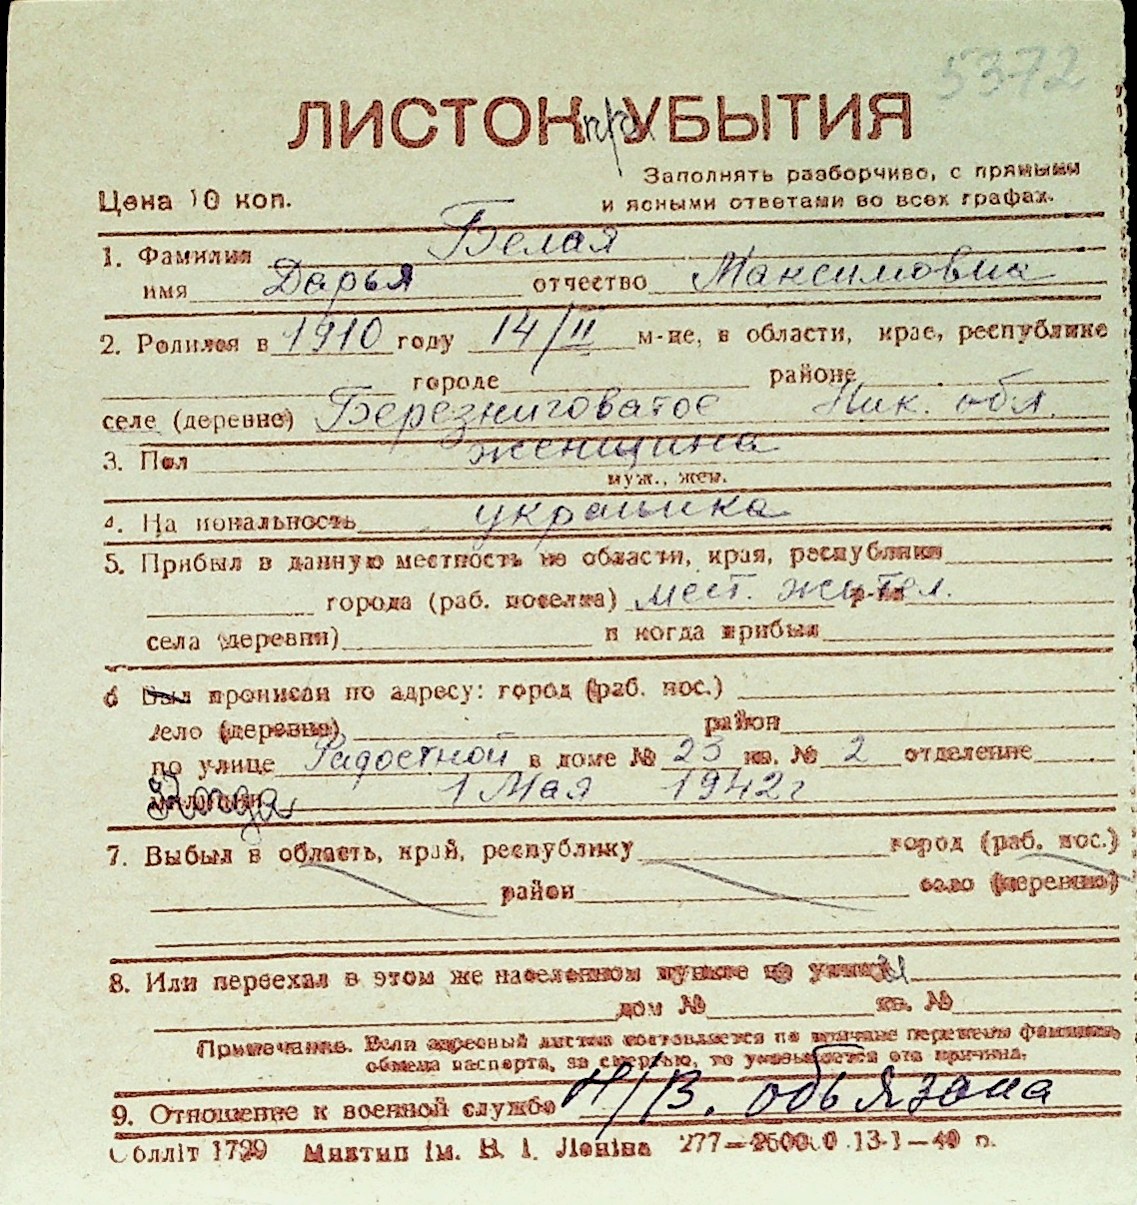 5372
ЛИСТОК при УБЫТИЯ
Заполнять разборчиво, с прямыми
Цена 10 коп.
и ясными ответами во всех графах.
1. Фамилия Белая
имя Дарья отчество Максимовна
2. Родился в 1910 году 14/II м-це, в области, крае, республике
городе районе
селе (деревне) Березниговатое Ник. обл.
3. Пол женщина
муж., жен.
4. Национальность украинка
5. Прибыл в данную местность из области, края, республики
города (раб. поселка) мест. жител. р-на
села (деревни) и когда прибыл
6 Был прописан по адресу: город (раб. пос.)
село (деревня) район
по улице Радостной в доме № 23 кв. № 2 отделение
милиции Когда 1 Мая 1942 г
7. Выбыл в область, край, республику город (раб. пос.)
район село (деревню)
8. Или переехал в этом же населенном пункте на улицу
дом № кв. №
Примечание. Если адресный листок составляется по причине перемены фамилии,
обмена паспорта, за смертью, то указывается эта причина.
9. Отношение к военной службе Н/В. обязана
Облліт 1729 Миктип ім. В. І. Леніна 277—250000 13-1—40 п.